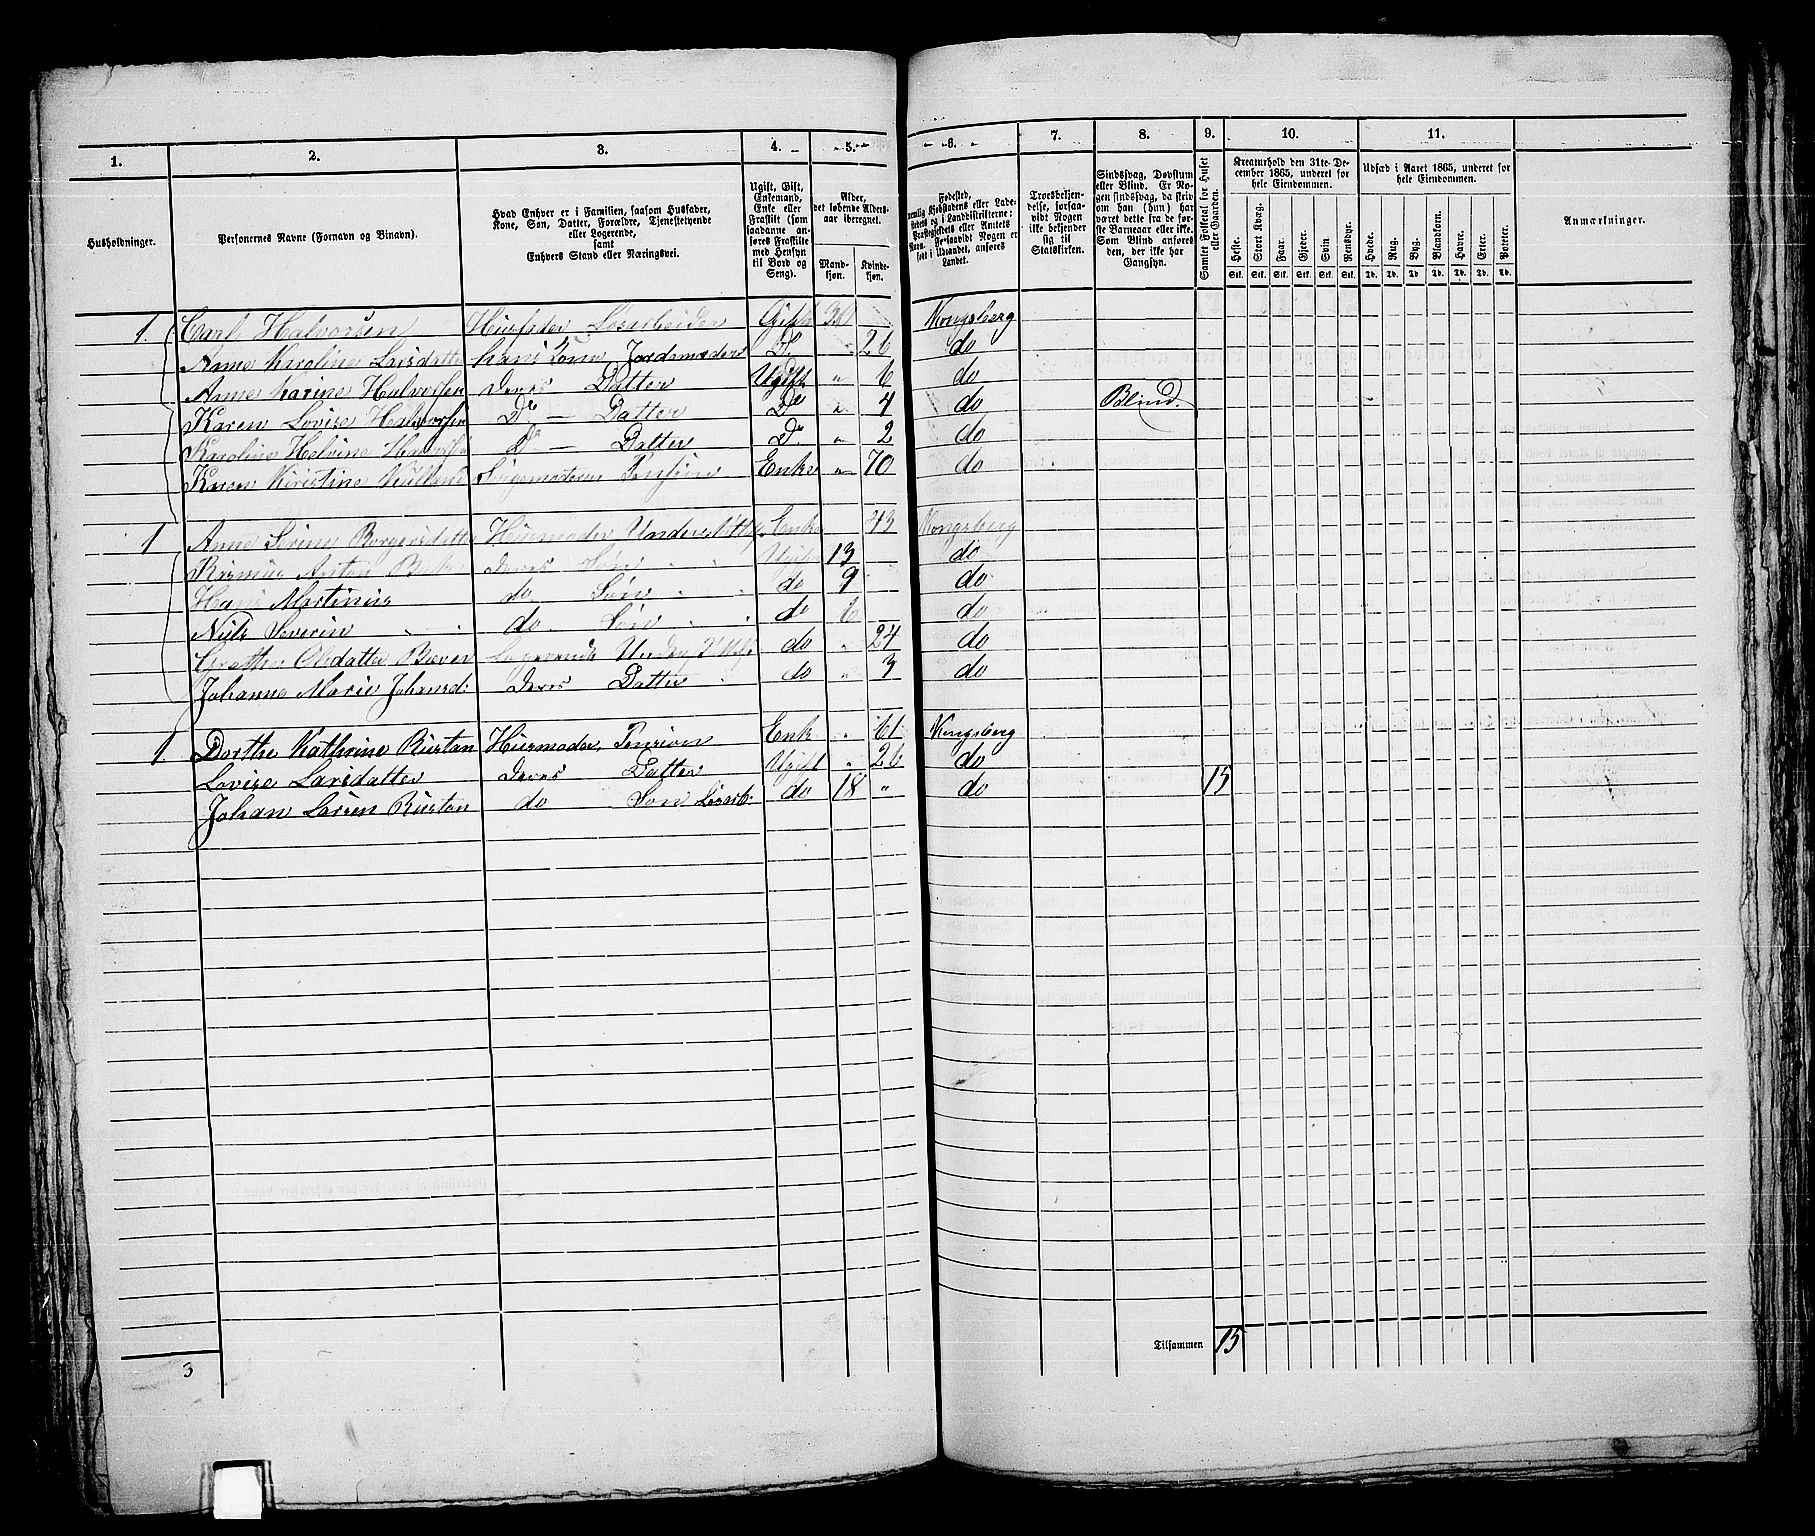 1. 2. 3. 4. 5. 6. 7. 8. 9. 10. 11.
Husholdninger.
Personernes Navne (Fornavn og Binavn).
Hvad Enhver er i Familien, saasom Husfader,
Kone, Søn, Datter, Forældre, Tjenestetyende
eller Logerende,
samt
Enhvers Stand eller Næringsvei.
Ugift, Gift,
Enkemand,
Enke eller
Fraskilt (som
saadanne an-
føres Fraskilte
med Hensyn
til Bord og
Seng).
Alder,
det løbende Alders-
aar iberegnet.
Mand-
kjøn.
Kvinde-
kjøn.
Fødested,
Troesbekjen-
delse, forsaa-
vidt Nogen
ikke bekjender
sig til
Statskirken.
Sindssvag, Døvstum
eller Blind. Er No-
gen sindssvag, da skriv
om han (hun) har
været dette fra de før-
ste Barneaar eller ikke.
Som Blind anføres
den, der ikke har
Gangsyn.
Samlet Folketal for Huset
eller Gaarden.
Kreaturhold den 31te De-
cember 1865, underet for
hele Eiendommen.
Heste. Stort Kvæg. Faar. Gjeder. Svin. Rensdyr.
Stk. Stk. Stk. Stk. Stk. Stk.
Udsæd i Aaret 1865, underet for
hele Eiendommen.
Hvede. Rug. Byg. Blandkorn. Havre. Erter. Poteter.
Td. Td. Td. Td. Td. Td. Td.
Anmærkninger.
1. Carl Halvorsen Husfader Løsarbeider Gift 30 Kongsberg
Anne Karoline Larsdatter hans Kone Jordemoder D° 26 do
Anne Karine Halvorsen Deres Datter Ugift " 6 do
Karen Lovise Halvorsen D° — Datter D° " 4 do Blind.
Karoline Helvine Halvorsen D° — Datter D° " 2 do
Kristine Enke " 70 do
1 Anne Serine Borgersdatter Husmoder Enke 43 Kongsberg
Anton Deres Søn Ugift 13 do
Hans Martinius do Søn do 9 do
Nils Severin do Søn do 6 do
Olsdatter Logerende do " 24 do
Johanne Marie Johansd: Deres Datter do " 3 do
1. Dorthe Kathrine Rustan Husmoder, Pension Enk " 61 Kongsberg
Lovise Larsdatter Deres Datter Ugift " 26 do
Johan Larsen Rustan do Søn Løsarb: do 18 " do 15
Tilsammen 15
3